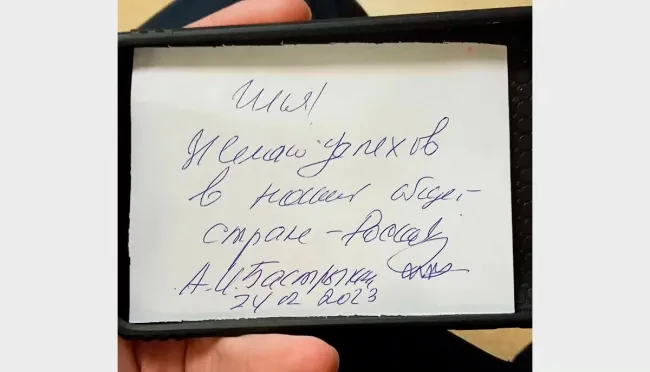 Илья!
Желаю успехов
в нашей общей
стране – России
А.И. Бастрыкин
24 12 2023